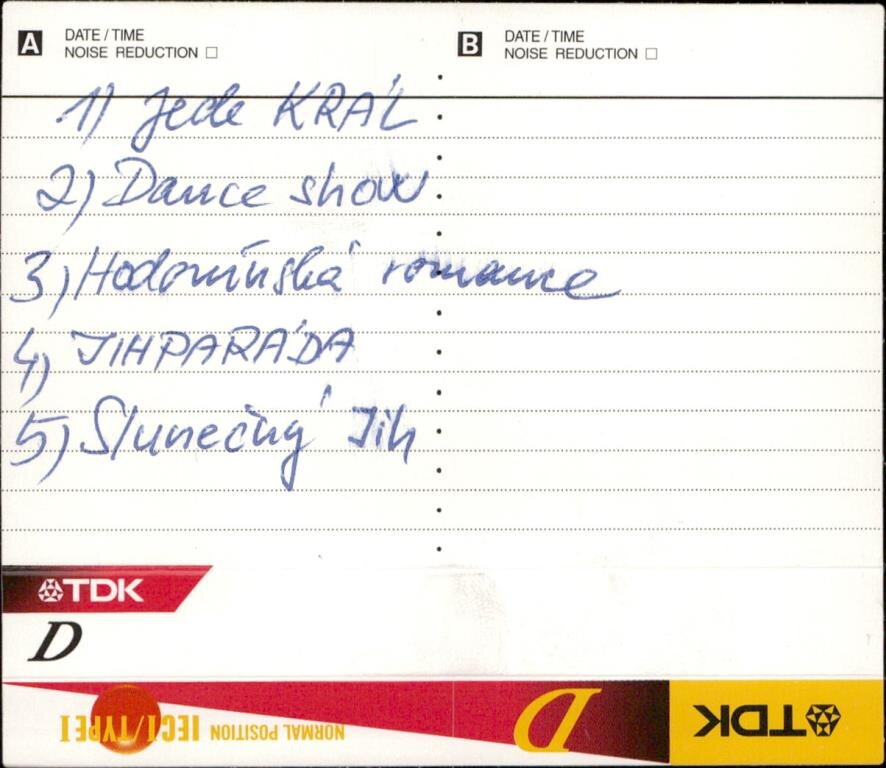 A DATE / TIME
NOISE REDUCTION
B DATE / TIME
NOISE REDUCTION
1) Jede KRÁL
2) Dance show
3) Hodonínská romance
4) JIHPARÁDA
5) Slunečný Jih
TDK
D
NORMAL POSITION IEC I / TYPE I
D
TDK